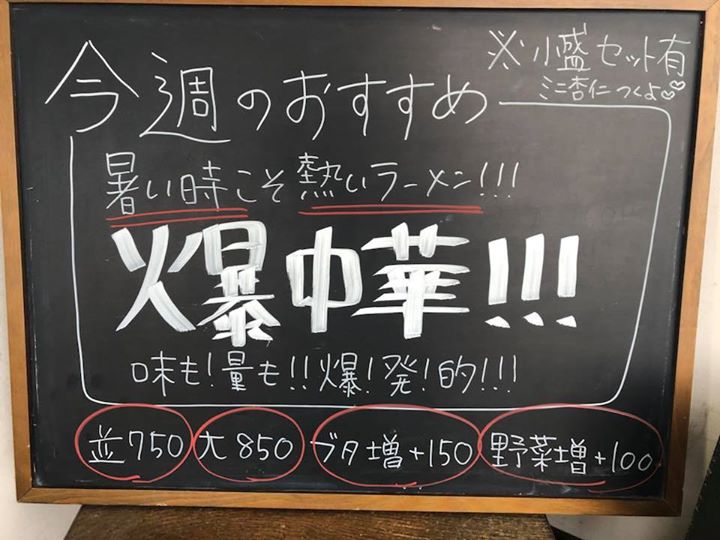 今週のおすすめ
※小盛セット有
ミニ杏仁つくよ♡♡
暑い時こそ熱いラーメン!!!
爆中華!!!
味も!量も!!爆!発!的!!!
並750 大850 ブタ増+150 野菜増+100